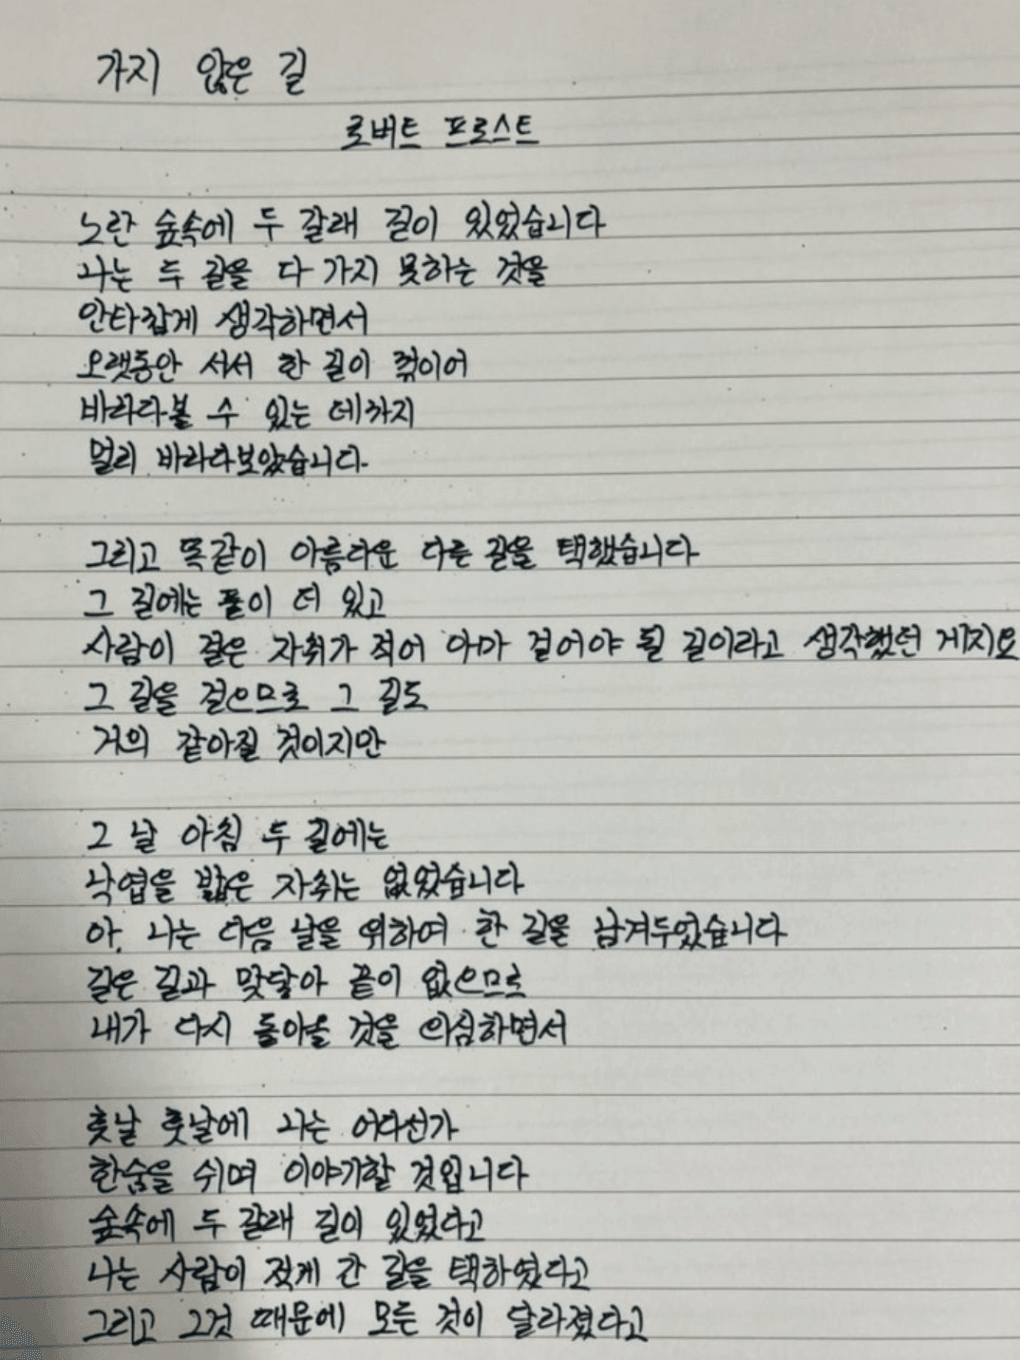 가지 않은 길
로버트 프로스트
노란 숲속에 두 갈래 길이 있었습니다
나는 두 길을 다 가지 못하는 것을
안타깝게 생각하면서
오랫동안 서서 한 길이 꺾이어
바라다볼 수 있는 데까지
멀리 바라다보았습니다.
그리고 똑같이 아름다운 다른 길을 택했습니다
그 길에는 풀이 더 있고
사람이 걸은 자취가 적어 아마 걸어야 될 길이라고 생각했던 게지요
그 길을 걸으므로 그 길도
거의 같아질 것이지만
그 날 아침 두 길에는
낙엽을 밟은 자취는 없었습니다
아, 나는 다음 날을 위하여 한 길을 남겨두었습니다
길은 길과 맞닿아 끝이 없으므로
내가 다시 돌아올 것을 의심하면서
훗날 훗날에 나는 어디선가
한숨을 쉬며 이야기할 것입니다
숲속에 두 갈래 길이 있었다고
나는 사람이 적게 간 길을 택하였다고
그리고 그것 때문에 모든 것이 달라졌다고